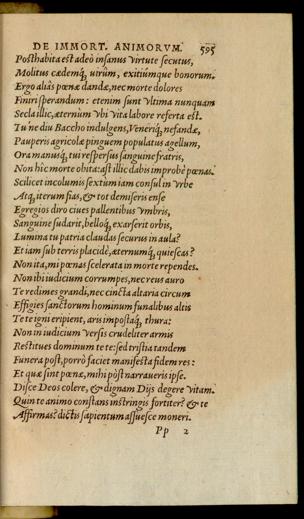 DE IMMORT. ANIMORVM. 595
Posthabita est adeò insanus virtute secutus,
Molitus cædemq́ue virûm, exitiúmque bonorum.
Ergo aliàs pœnæ dandæ, nec morte dolores
Finiri sperandum: etenim sunt vltima nunquam
Secla illic, æternùm vbi vita labore referta est.
Tu'ne diu Baccho indulgens, Veneriq́; nefandæ,
Pauperis agricolæ pinguem populatus agellum,
Ora manusq́; tui respersus sanguine fratris,
Non hîc morte obita: ast illîc dabis improbe pœnas.
Scilicet incolumis sextùm iam consul in vrbe
Atq́; iterum fias, & tot demiseris ense
Egregios diro ciues pallentibus vmbris,
Sanguine sudarit, belloq́; exarserit orbis,
Lumina tu patria claudas securus in aula?
Et iam sub terris placidè, æternumq́; quiescas?
Non ita, mi pœnas scelerata in morte rependes.
Non ibi iudicium corrumpes, nec reus auro
Te redimes grandi, nec cincta altaria circum
Effigies sanctorum hominum funalibus altis
Te te igni eripient, aris impostáq́; thura:
Non in iudicium versis crudeliter armis
Restitues dominum te te: sed tristia tandem
Funera post, porrò faciet manifesta fidem res:
Et quæ sint pœnæ, mihi pòst narraueris ipse.
Disce Deos colere, & dignam Dijs degere vitam.
Quin te animo constans instringis fortiter? & te
Affirmas? dictis sapientum assuesce moneri.
Pp 2